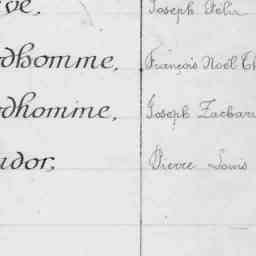 ve, Joseph Félix
rdhomme, François Noël Th
rdhomme, Joseph Zachari
udor, Pierre Louis